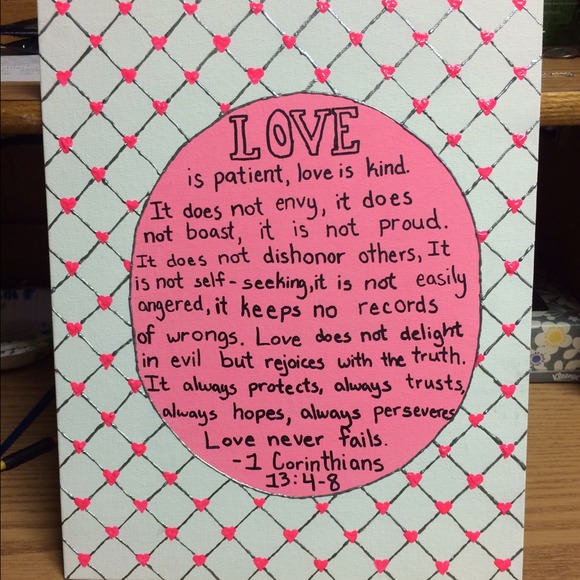 LOVE
is patient, love is kind.
It does not envy, it does
not boast, it is not proud.
It does not dishonor others, It
is not self-seeking, it is not easily
angered, it keeps no records
of wrongs. Love does not delight
in evil but rejoices with the truth.
It always protects, always trusts,
always hopes, always perseveres
Love never fails.
-1 Corinthians
13:4-8